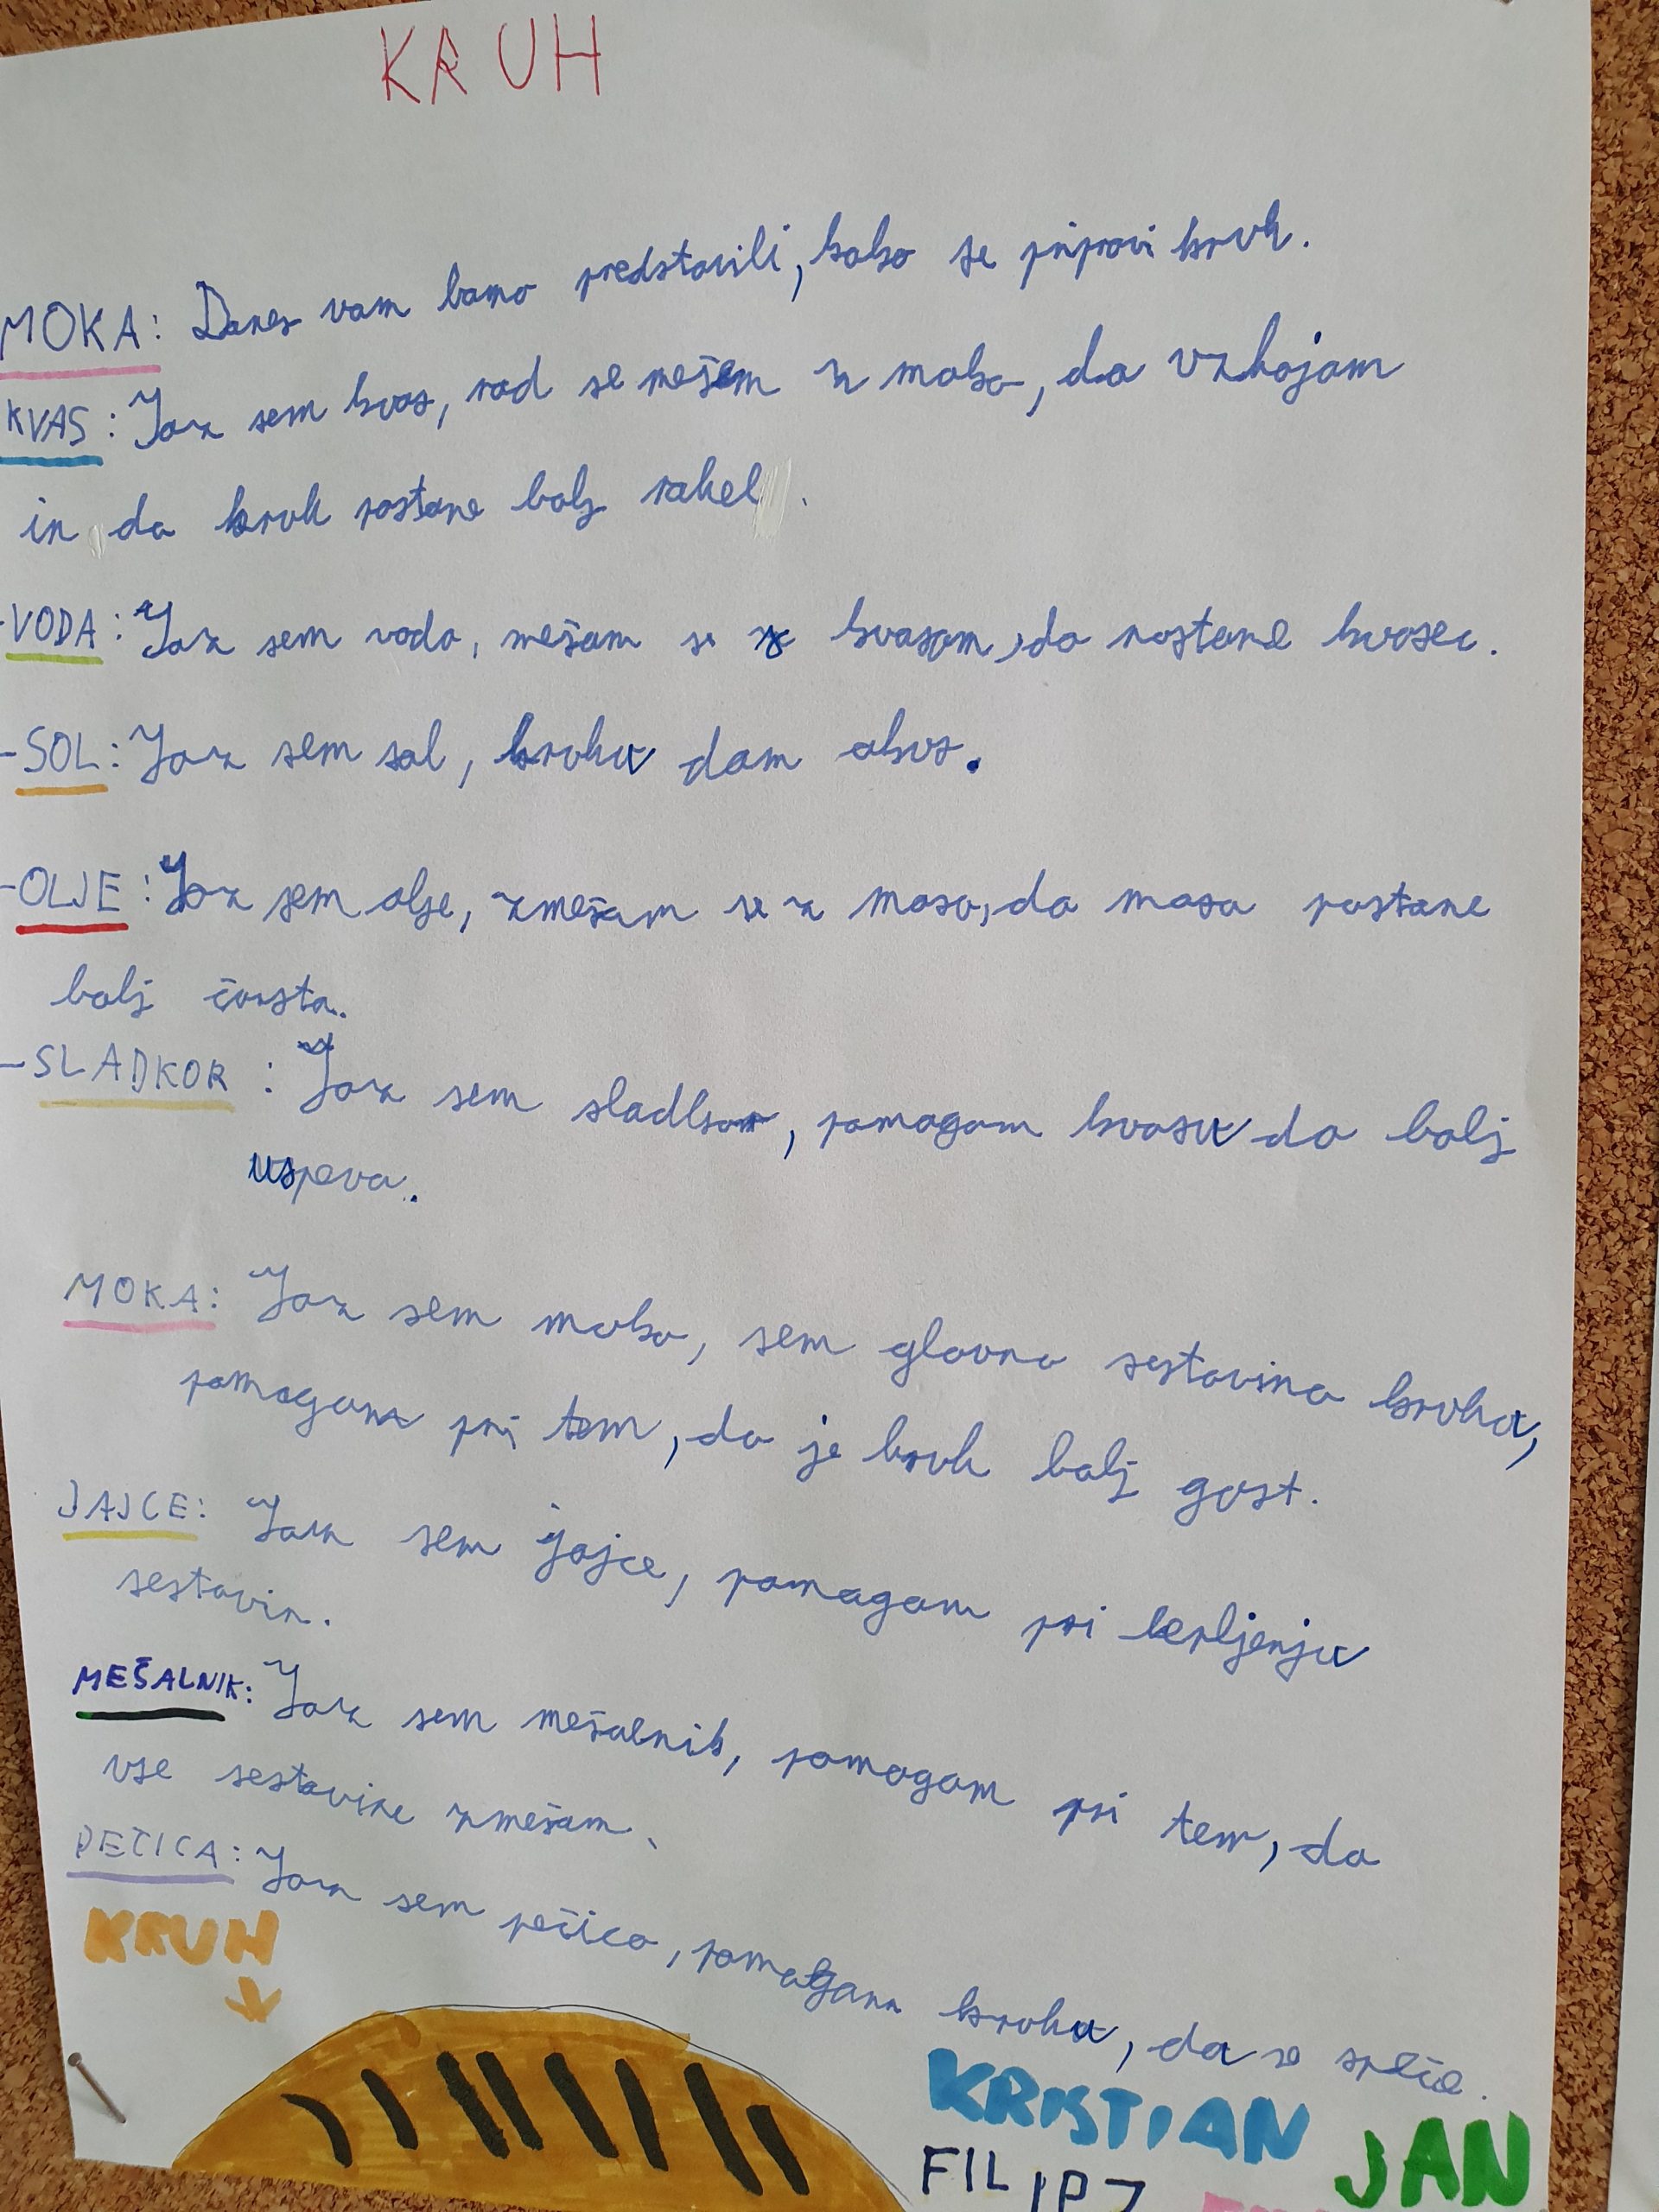 KRUH
MOKA: Danes vam bomo predstavili, kako se pripravi kruh.
KVAS: Jaz sem kvas, rad se mešam z moko, da vzhajam
in da kruh postane bolj rahel.
-VODA: Jaz sem voda, mešam se s kvasom, da nastane kvasec.
-SOL: Jaz sem sol, kruhu dam okus.
-OLJE: Jaz sem olje, zmešam se z maso, da masa postane
bolj čvrsta.
-SLADKOR: Jaz sem sladkor, pomagam kvasu da bolj
uspeva.
MOKA: Jaz sem moka, sem glavna sestavina kruha,
pomagam pri tem, da je kruh bolj gost.
JAJCE: Jaz sem jajce, pomagam pri lepljenju
sestavin.
MEŠALNIK: Jaz sem mešalnik, pomagam pri tem, da
vse sestavine zmešam.
PEČICA: Jaz sem pečica, pomagam kruhu, da se speče.
KRUH
KRISTIAN
JAN
FILIP